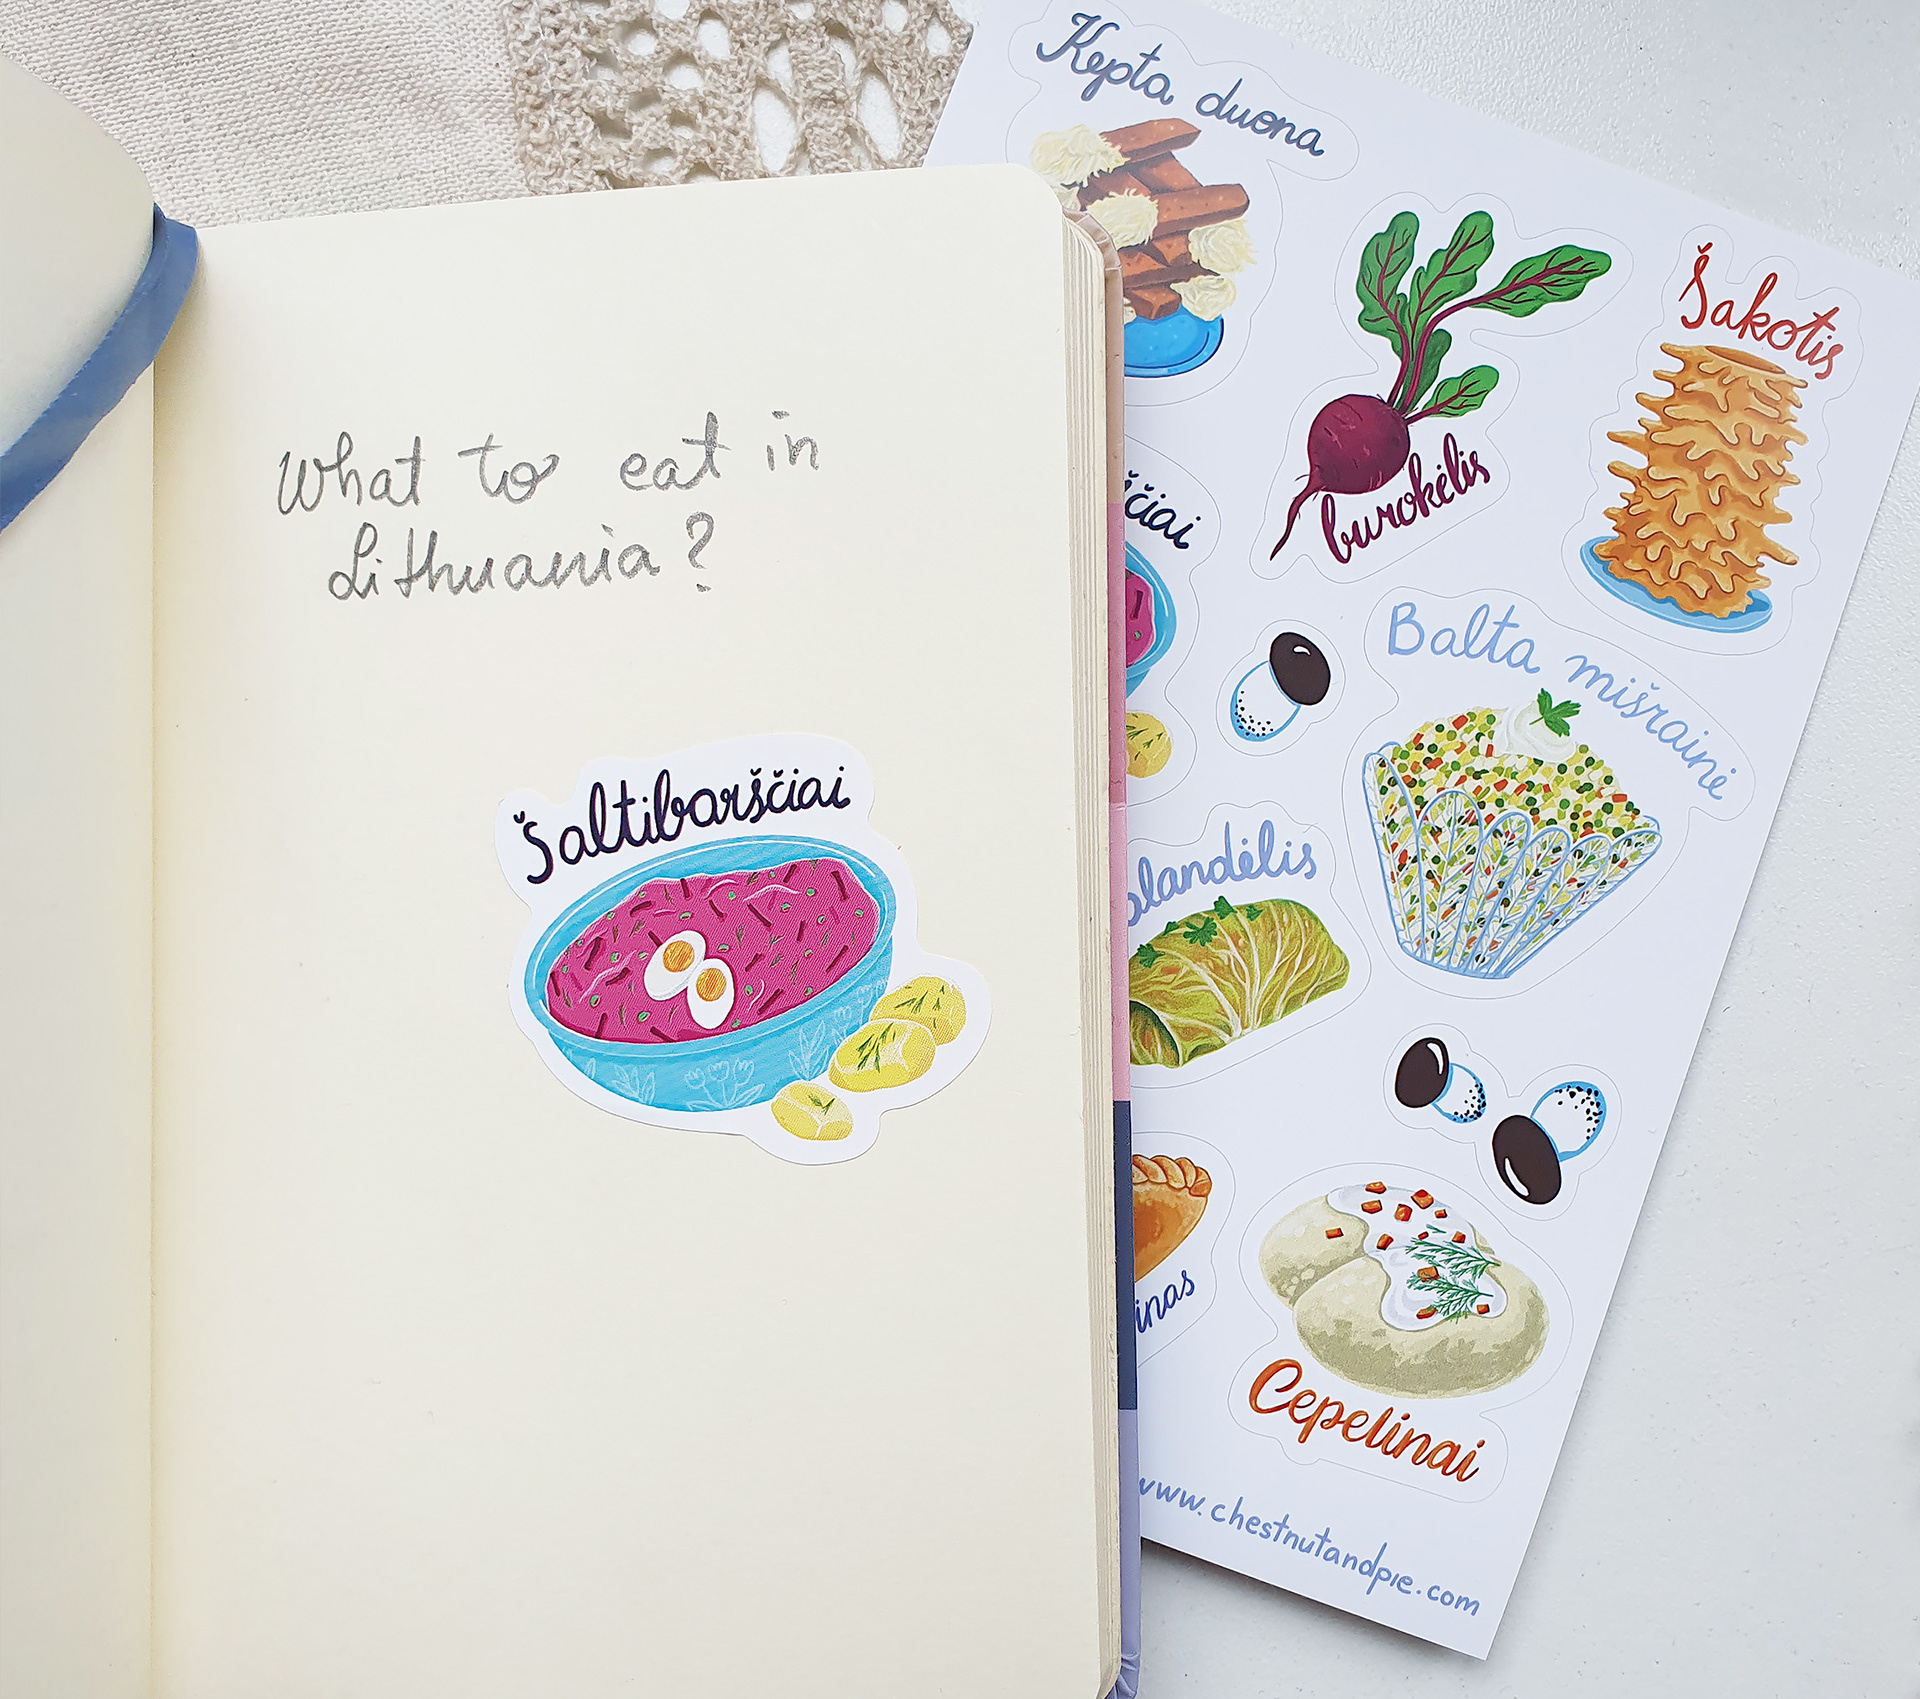 What to eat in
Lithuania?
Šaltibarščiai
Kepta duona
burokėlis
Šakotis
čiai
Balta mišrainė
landėlis
inas
Cepelinai
www.chestnutandpie.com